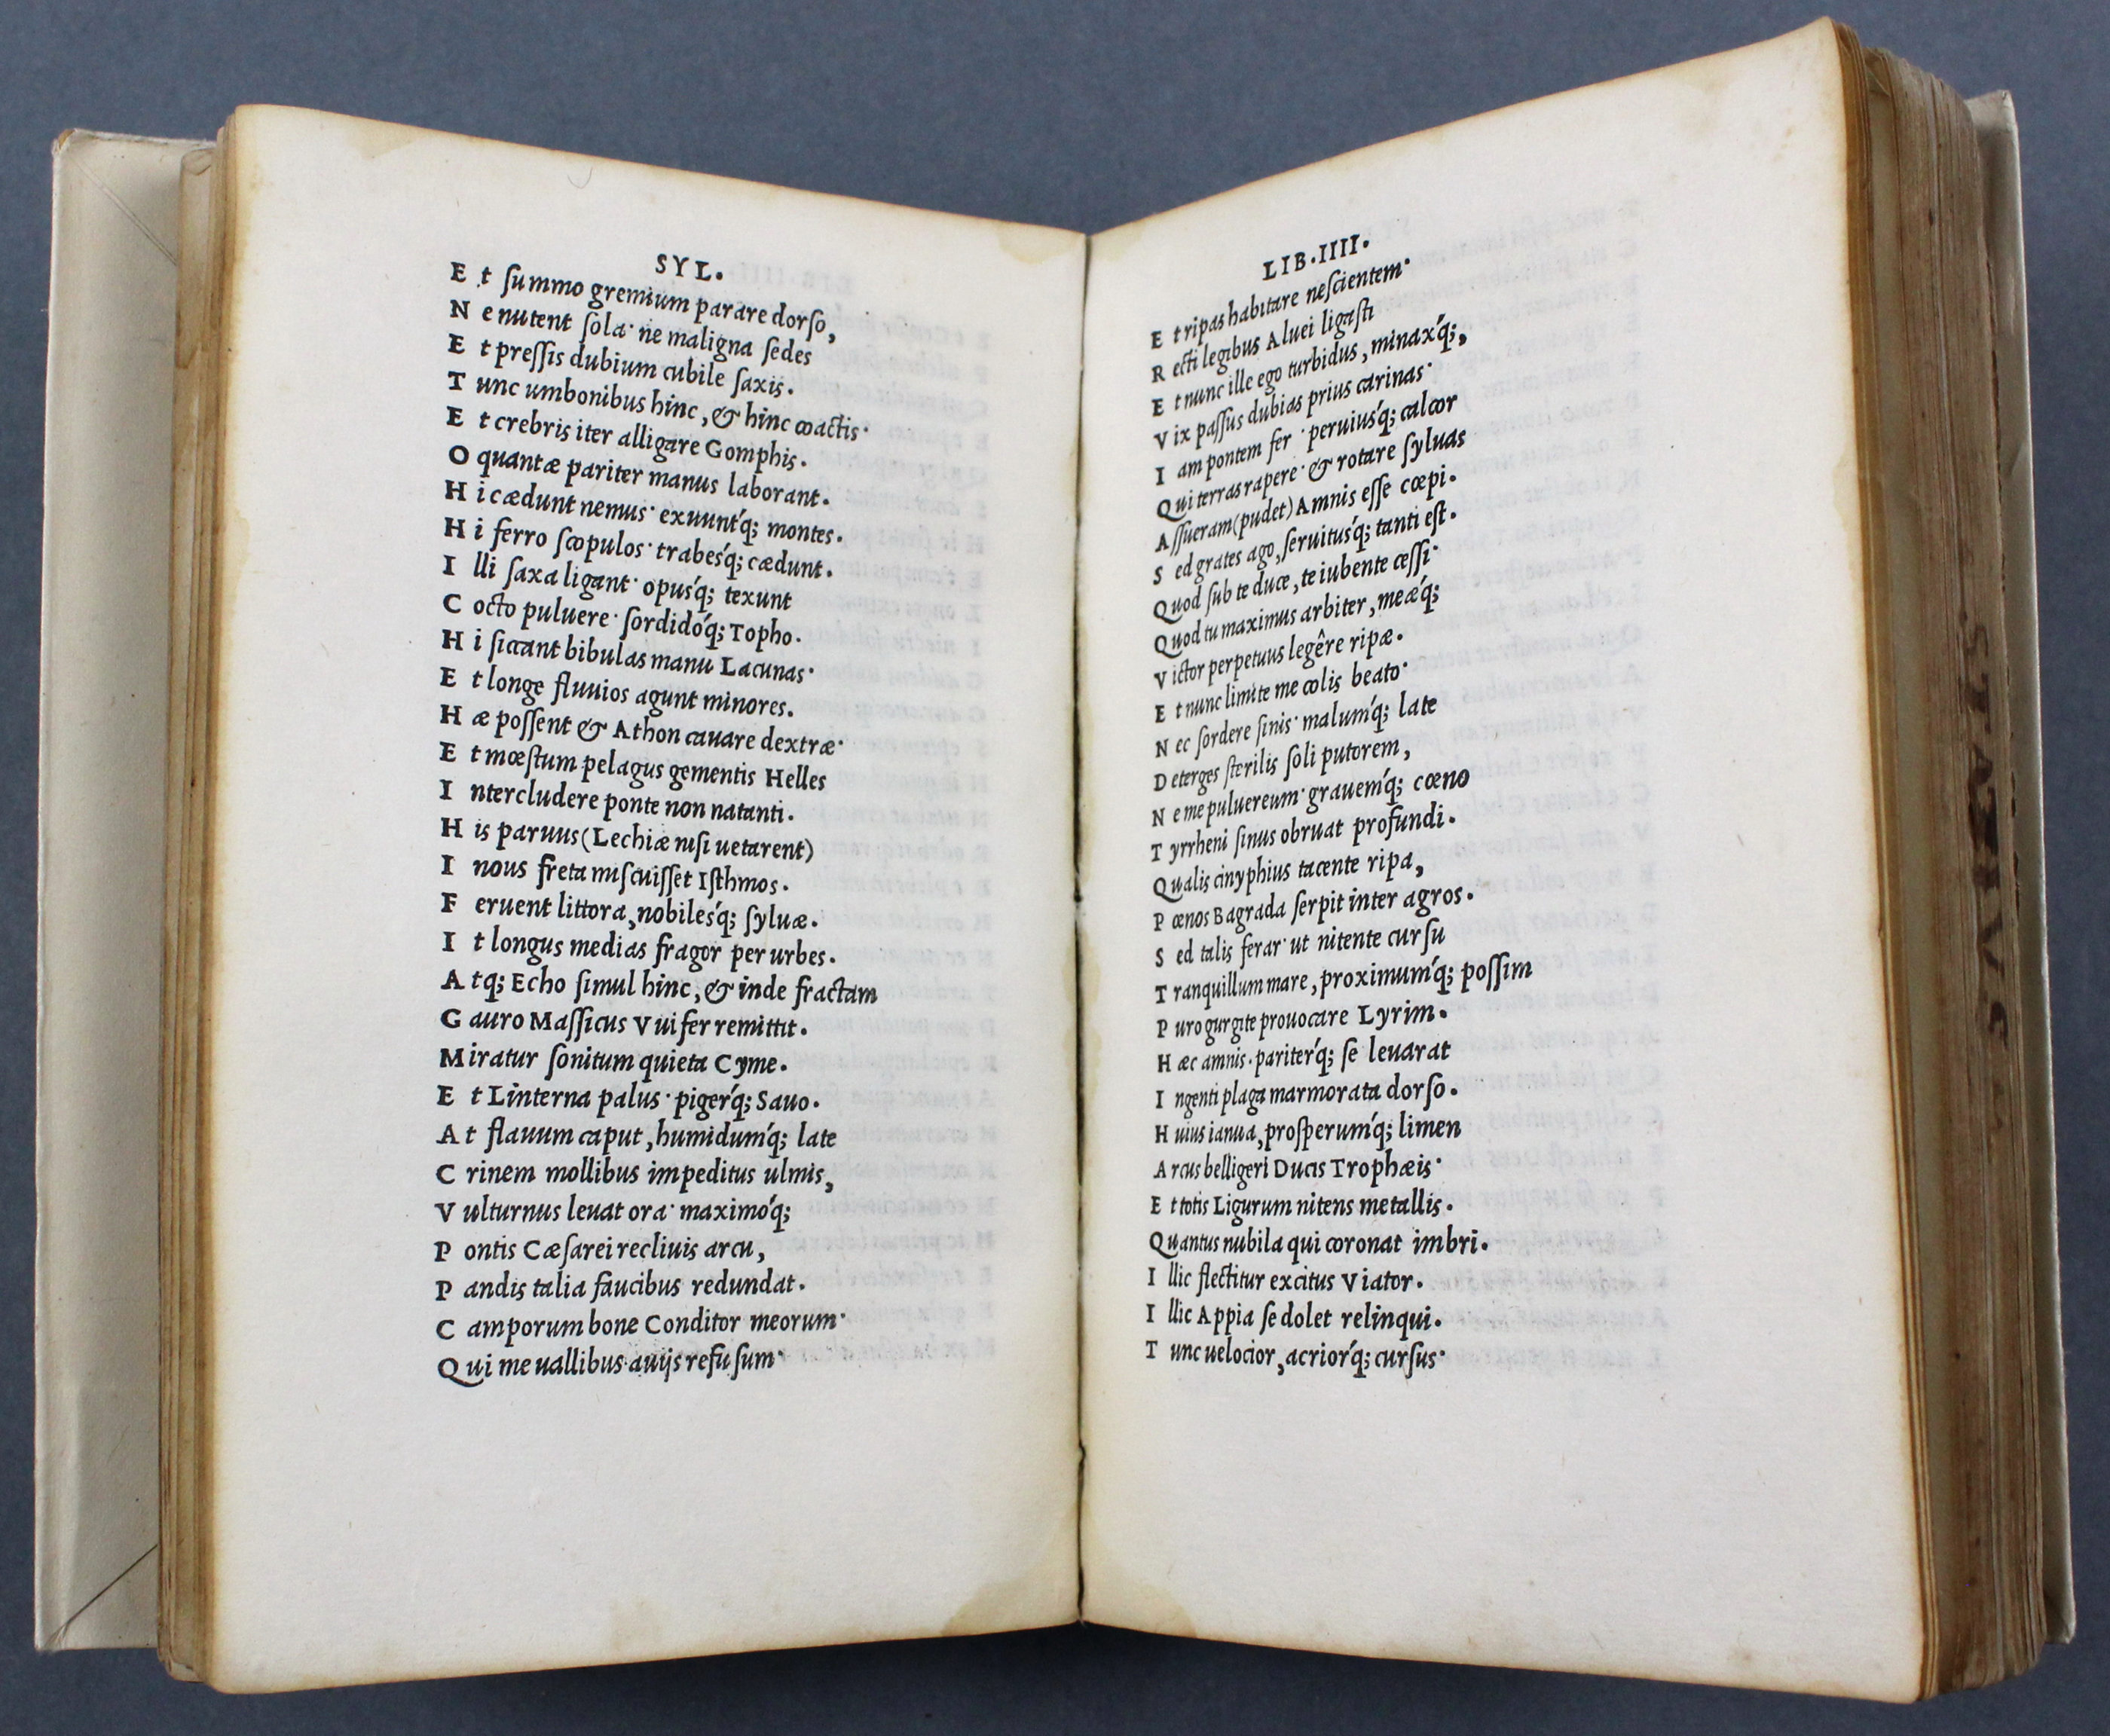 SYL.
E t ſummo gremium parare dorſo,
N e nutent ſola· ne maligna ſedes
E t preſſis dubium cubile ſaxis.
T unc umbonibus hinc, & hinc coactis·
E t crebris iter alligare Gomphis.
O quantæ pariter manus laborant.
H i cædunt nemus· exuuntq́; montes.
H i ferro ſcopulos· trabesq́; cædunt.
I lli ſaxa ligant· opusq́; texunt
C octo puluere· ſordidoq́; Topho.
H i ſiccant bibulas manu Lacunas·
E t longe fluuios agunt minores.
H æ poſſent & Athon cauare dextræ·
E t mœſtum pelagus gementis Helles
I ntercludere ponte non natanti.
H is paruus (Lechiæ niſi uetarent)
I nous freta miſcuiſſet Iſthmos.
F eruent littora, nobilesq́; ſyluæ.
I t longus medias fragor per urbes.
A tq; Echo ſimul hinc, & inde fractam
G auro Maſſicus Vuifer remittit.
Miratur ſonitum quieta Cyme.
E t Linterna palus· pigerq́; Sauo.
A t flauum caput, humidumq́; late
C rinem mollibus impeditus ulmis,
V ulturnus leuat ora· maximoq́;
P ontis Cæſarei recliuis arcu,
P andis talia faucibus redundat.
C amporum bone Conditor meorum·
Q ui me uallibus auijs refuſum·
LIB.IIII.
E t ripas habitare neſcientem·
R ecti legibus Aluei ligaſti
E t nunc ille ego turbidus, minaxq́;,
V ix paſſus dubias prius carinas·
I am pontem fer· peruiusq́; calcor
Q ui terras rapere· & rotare ſyluas
A ſſueram (pudet) Amnis eſſe cœpi.
S ed grates ago, ſeruitusq́; tanti eſt.
Q uod ſub te duce, te iubente ceſſi·
Q uod tu maximus arbiter, meæq́;
V ictor perpetuus legêre ripæ.
E t nunc limite me colis beato·
N ec ſordere ſinis· malumq́; late
D eterges ſterilis ſoli putorem,
N e me puluereum· grauemq́; cœno
T yrrheni ſinus obruat profundi.
Q ualis cinyphius tacente ripa,
P œnos Bagrada ſerpit inter agros.
S ed talis ferar· ut nitente curſu
T ranquillum mare, proximumq́; poſſim
P uro gurgite prouocare Lyrim.
H æc amnis· pariterq́; ſe leuarat
I ngenti plaga marmorata dorſo.
H uius ianua, proſperumq́; limen
A rcus belligeri Ducis Trophæis·
E t totis Ligurum nitens metallis.
Q uantus nubila qui coronat imbri.
I llic flectitur excitus Viator.
I llic Appia ſe dolet relinqui.
T unc uelocior, acriorq́; curſus·
STATIVS